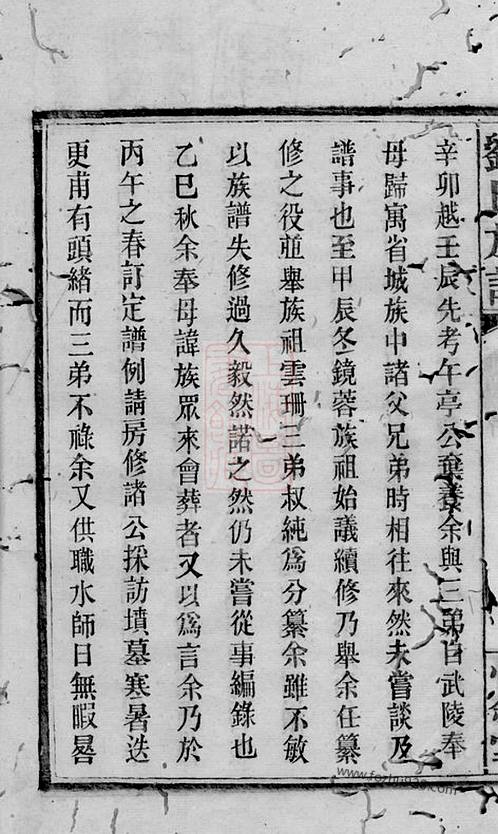 辛卯越壬辰先考午亭公棄養余與三弟自武陵奉
母歸寓省城族中諸父兄弟時相往來然未嘗談及
譜事也至甲辰冬鏡蓉族祖始議續修乃舉余任纂
修之役並舉族祖雲珊三弟叔純爲分纂余雖不敏
以族譜失修過久毅然諾之然仍未嘗從事編錄也
乙巳秋余奉母諱族眾來會葬者又以爲言余乃於
丙午之春訂定譜例請房修諸公採訪墳墓寒暑迭
更甫有頭緒而三弟不祿余又供職水師日無暇晷